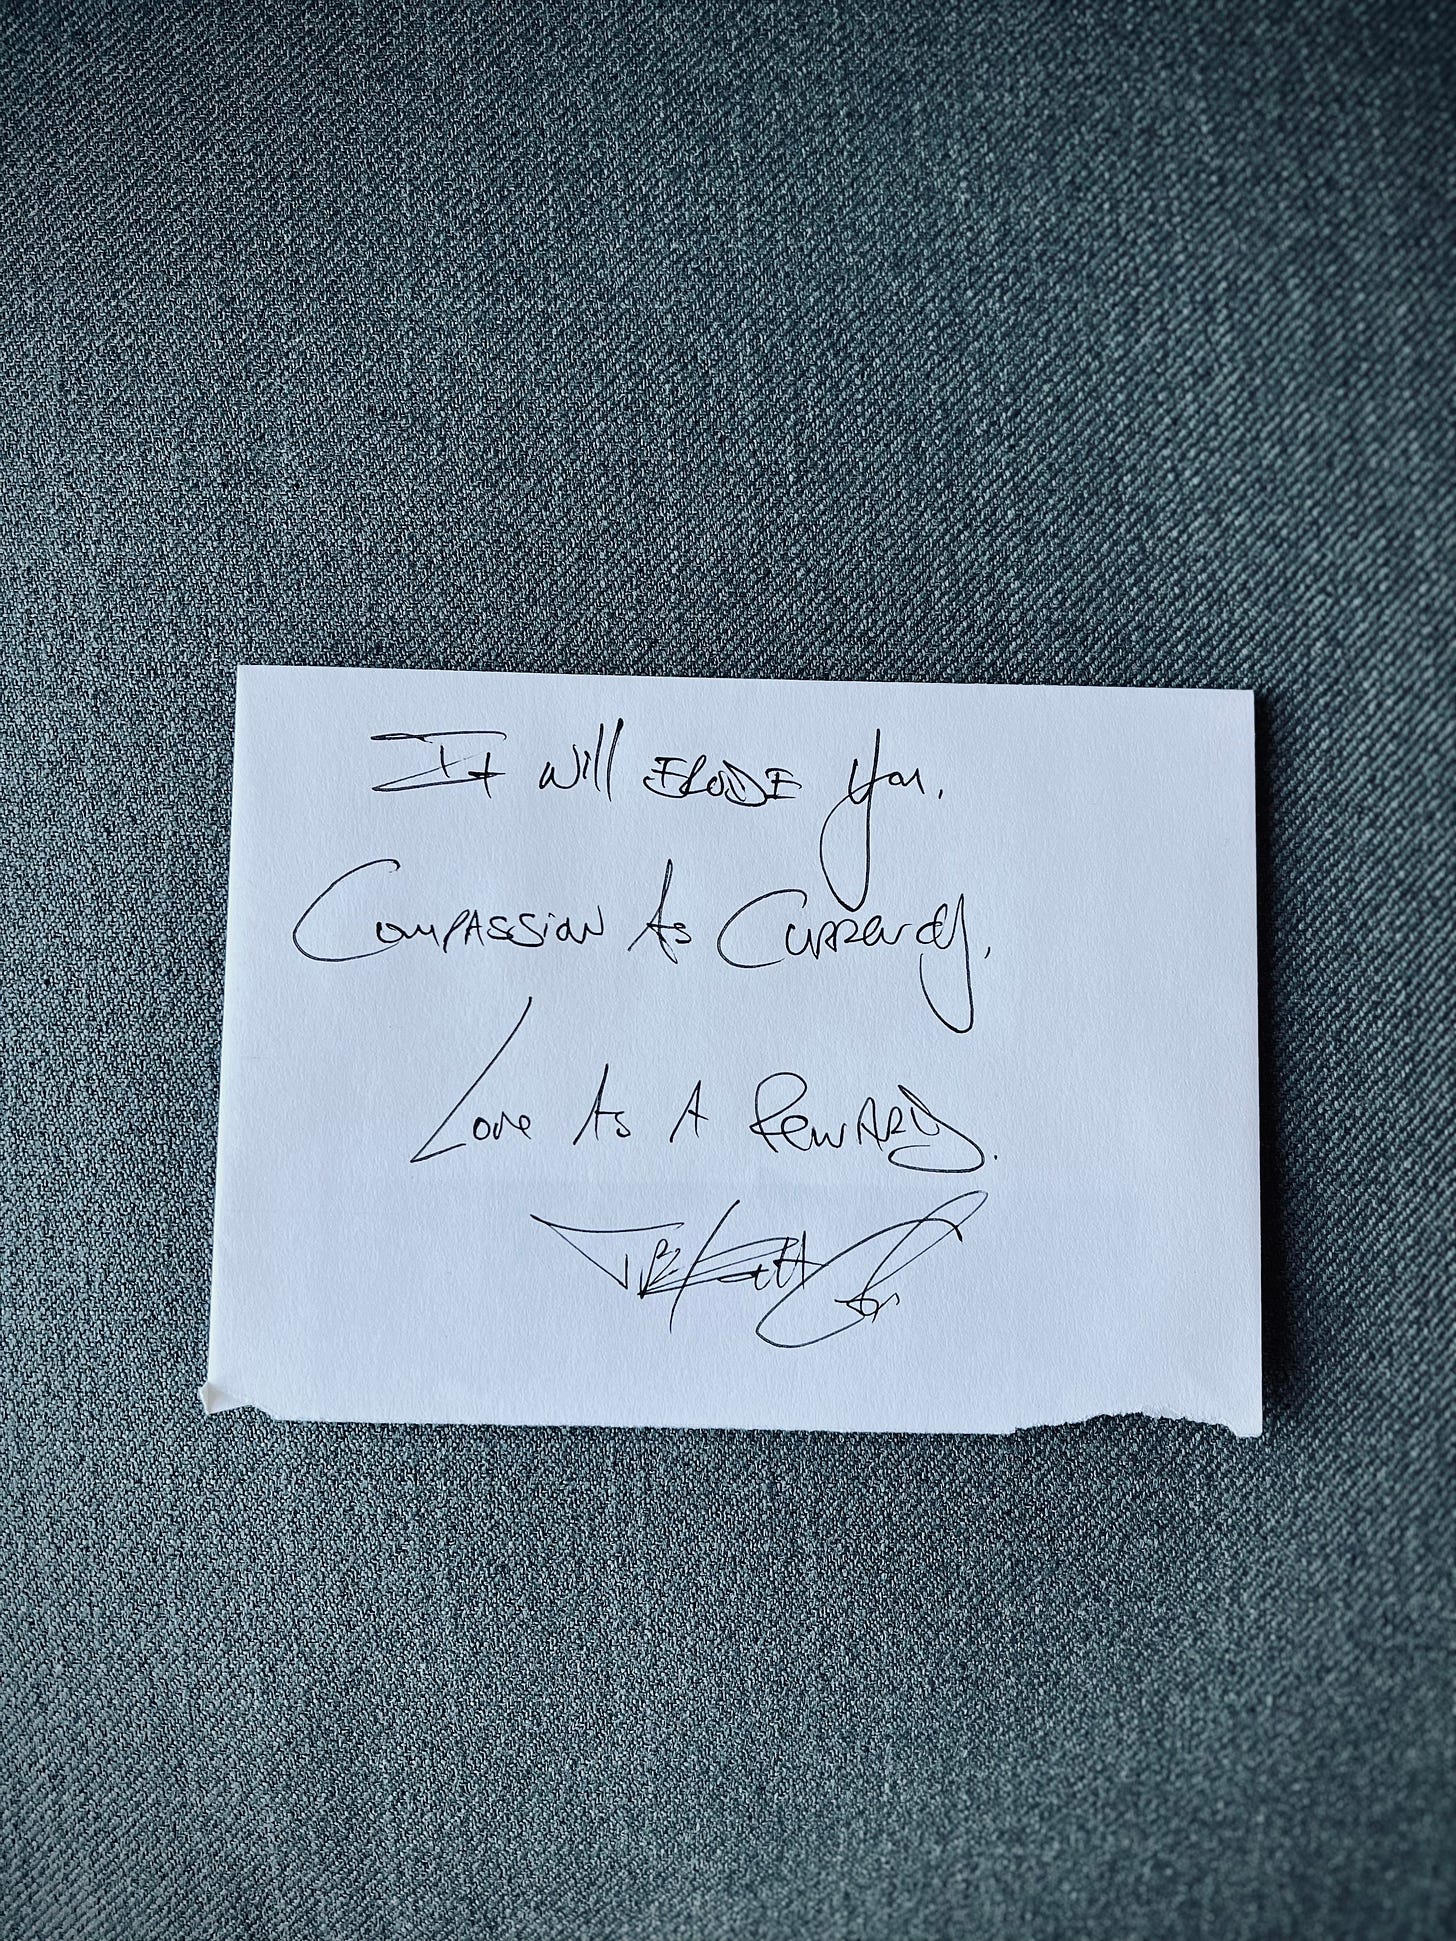 It will ERODE You.
Compassion As Currency.
Love As A Reward.